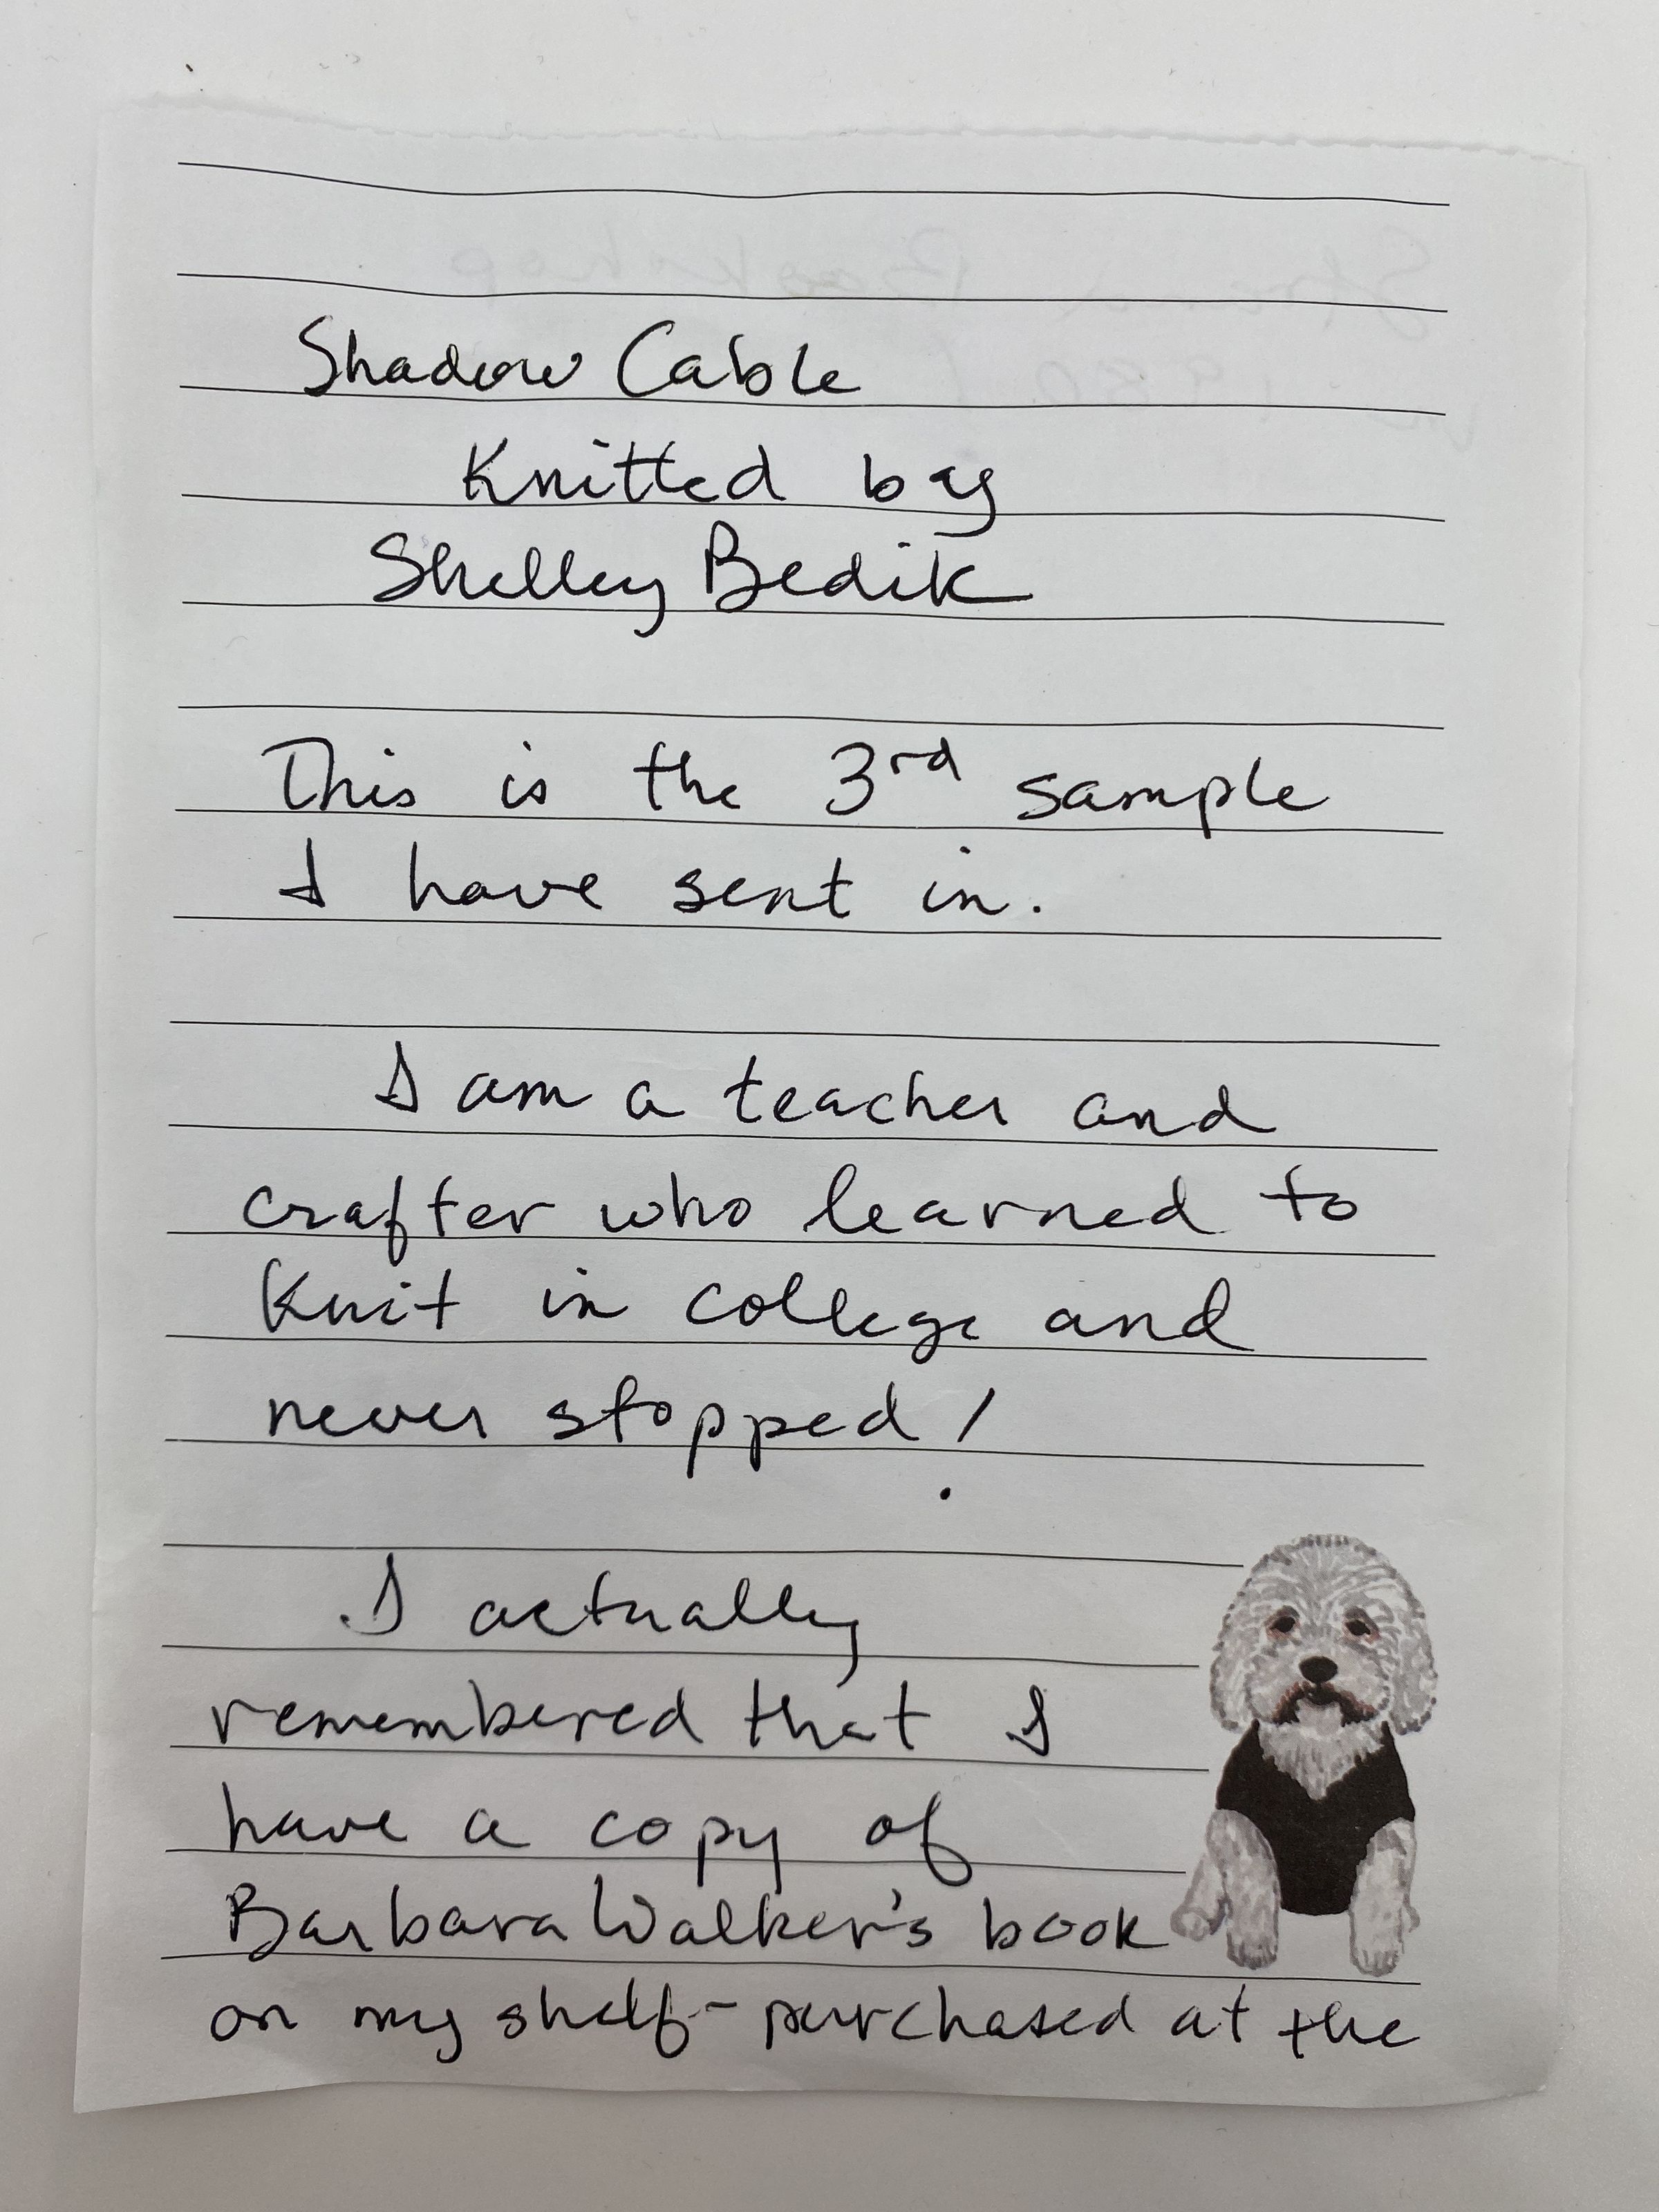 Shadow Cable
Knitted bag
Shelley Bedik
This is the 3rd sample
I have sent in.
I am a teacher and
crafter who learned to
Knit in college and
never stopped!
I actually
remembered that I
have a copy of
Barbara Walker's book
on my shelf - purchased at the